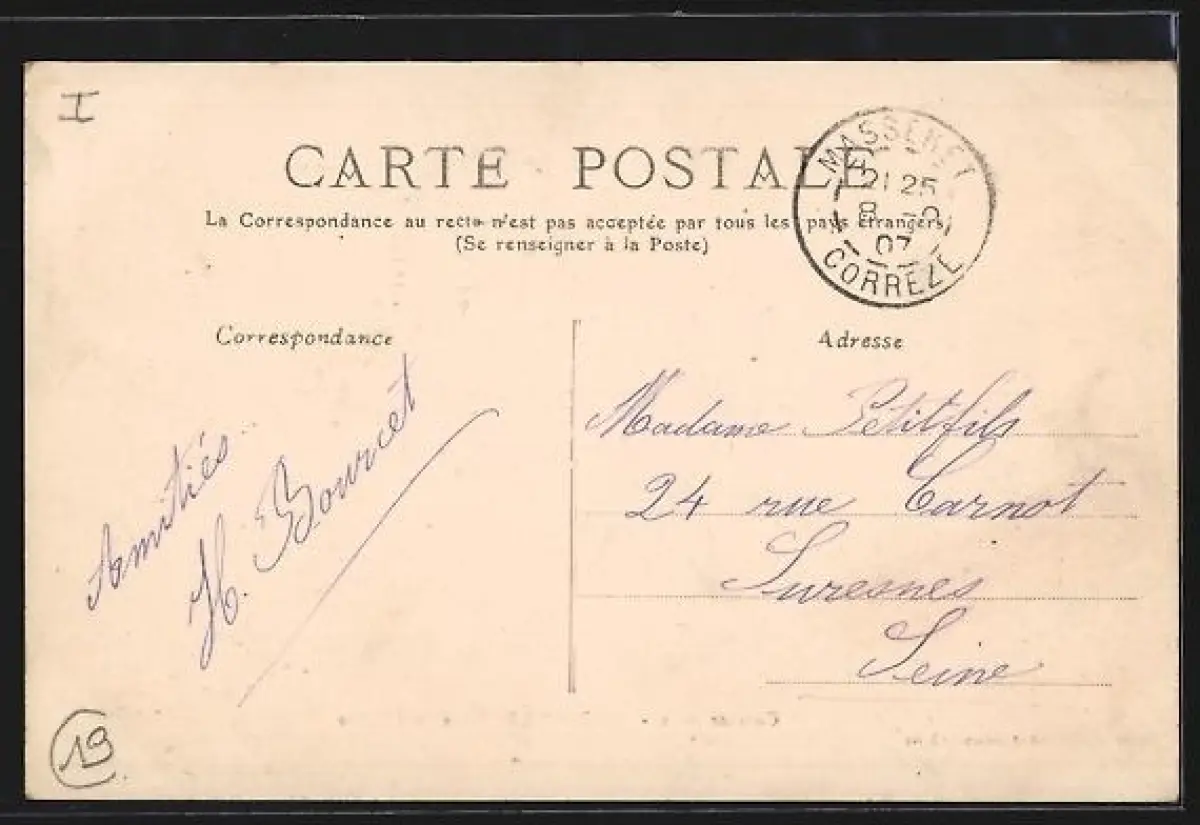 I
CARTE POSTALE
La Correspondance au recto n'est pas acceptée par tous les pays étrangers
(Se renseigner à la Poste)
MASSERET
21 25
8
07
CORREZE
Correspondance
Adresse
Amitiés
H. Bourcet
Madame Petitfils
24 rue Carnot
Suresnes
Seine
19